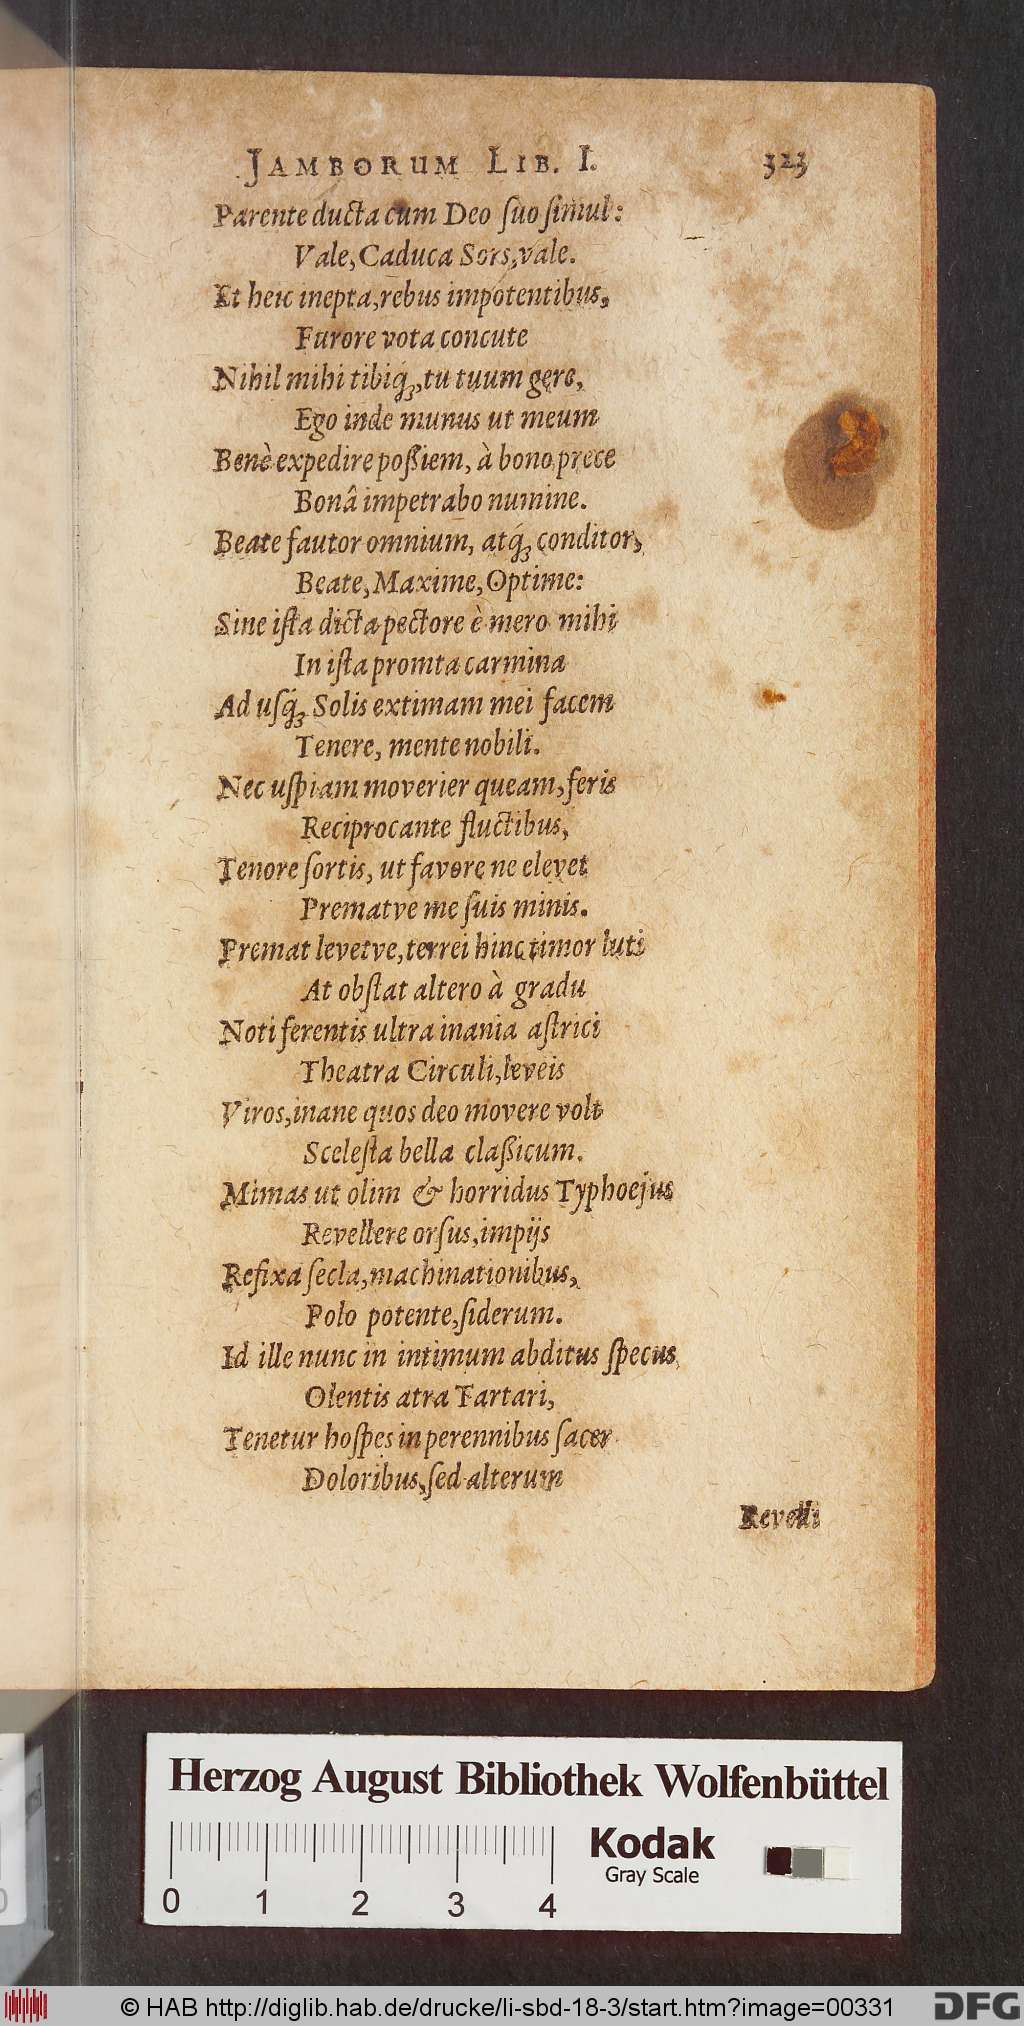 JAMBORUM LIB. I. 323
Parente ducta cum Deo ſuo ſimul:
Vale, Caduca Sors, vale.
Et heic inepta, rebus impotentibus,
Furore vota concute
Nihil mihi tibiq́;, tu tuum gere,
Ego inde munus ut meum
Benè expedire poßiem, à bono prece
Bonâ impetrabo numine.
Beate fautor omnium, atq́; conditor,
Beate, Maxime, Optime:
Sine iſta dicta pectore è mero mihi
In iſta promta carmina
Ad uſq́; Solis extimam mei facem
Tenere, mente nobili.
Nec uſpiam moverier queam, feris
Reciprocante fluctibus,
Tenore ſortis, ut favore ne elevet
Prematve me ſuis minis.
Premat levetve, terrei hinc timor luti
At obſtat altero à gradu
Noti ferentis ultra inania aſtrici
Theatra Circuli, leveis
Viros, inane quos deo movere volt
Sceleſta bella claßicum.
Mimas ut olim & horridus Typhoejus
Revellere orſus, impijs
Refixa ſecla, machinationibus,
Polo potente, ſiderum.
Id ille nunc in intimum abditus ſpecus
Olentis atra Tartari,
Tenetur hoſpes in perennibus ſacer
Doloribus, ſed alterum
Revelli
Herzog August Bibliothek Wolfenbüttel
Kodak
Gray Scale
0 1 2 3 4
© HAB http://diglib.hab.de/drucke/li-sbd-18-3/start.htm?image=00331
DFG